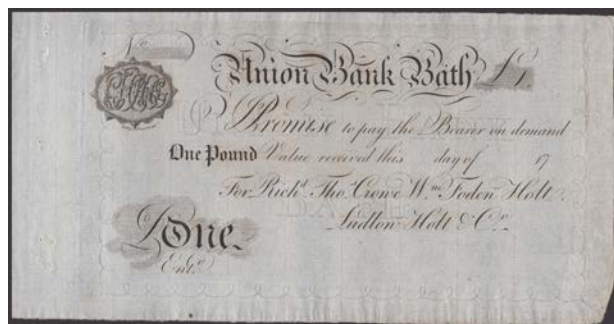 No
Union Bank Bath £1.
Promise to pay the Bearer on demand
One Pound Value received this day of 17
For Richd. Tho. Crowe Wm. Foden Holt.
Ludlow Holt & Co.
£ One
Entd.